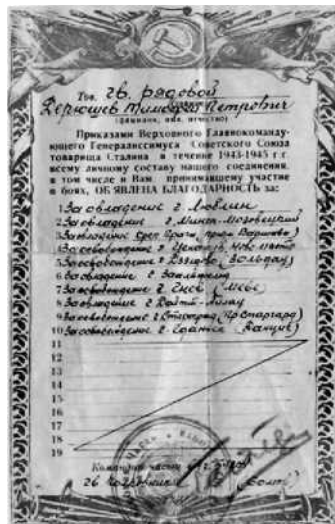 Тов. гв. рядовой
Петрович
(фамилия, имя, отчество)
Приказами Верховного Главнокоманду-
ющего Генералиссимуса Советского Союза
товарища Сталина в течение 1943-1945 г.г.
всему личному составу нашего соединения,
в том числе и Вам принимавшему участие
в боях, ОБЪЯВЛЕНА БЛАГОДАРНОСТЬ за:
1 За овладение г. Люблин
2 За овладение г. Минск-Мазовецкий
3 За овладение креп. Прага, пред. Варшавы
4 За освобождение г. Цеханув, Нове-Място
5 За освобождение г. Дзядово (Зольдау)
6 За овладение г. Заальфельд
7 За освобождение г. Гнев (Меве)
8 За овладение г. Дойч-Айлау
9 За освобождение г. Старгард (Пр. Старгард)
10 За освобождение г. Гданьск (Данциг)
11
12
13
14
15
16
17
18
19
Командир части
гв. полковник